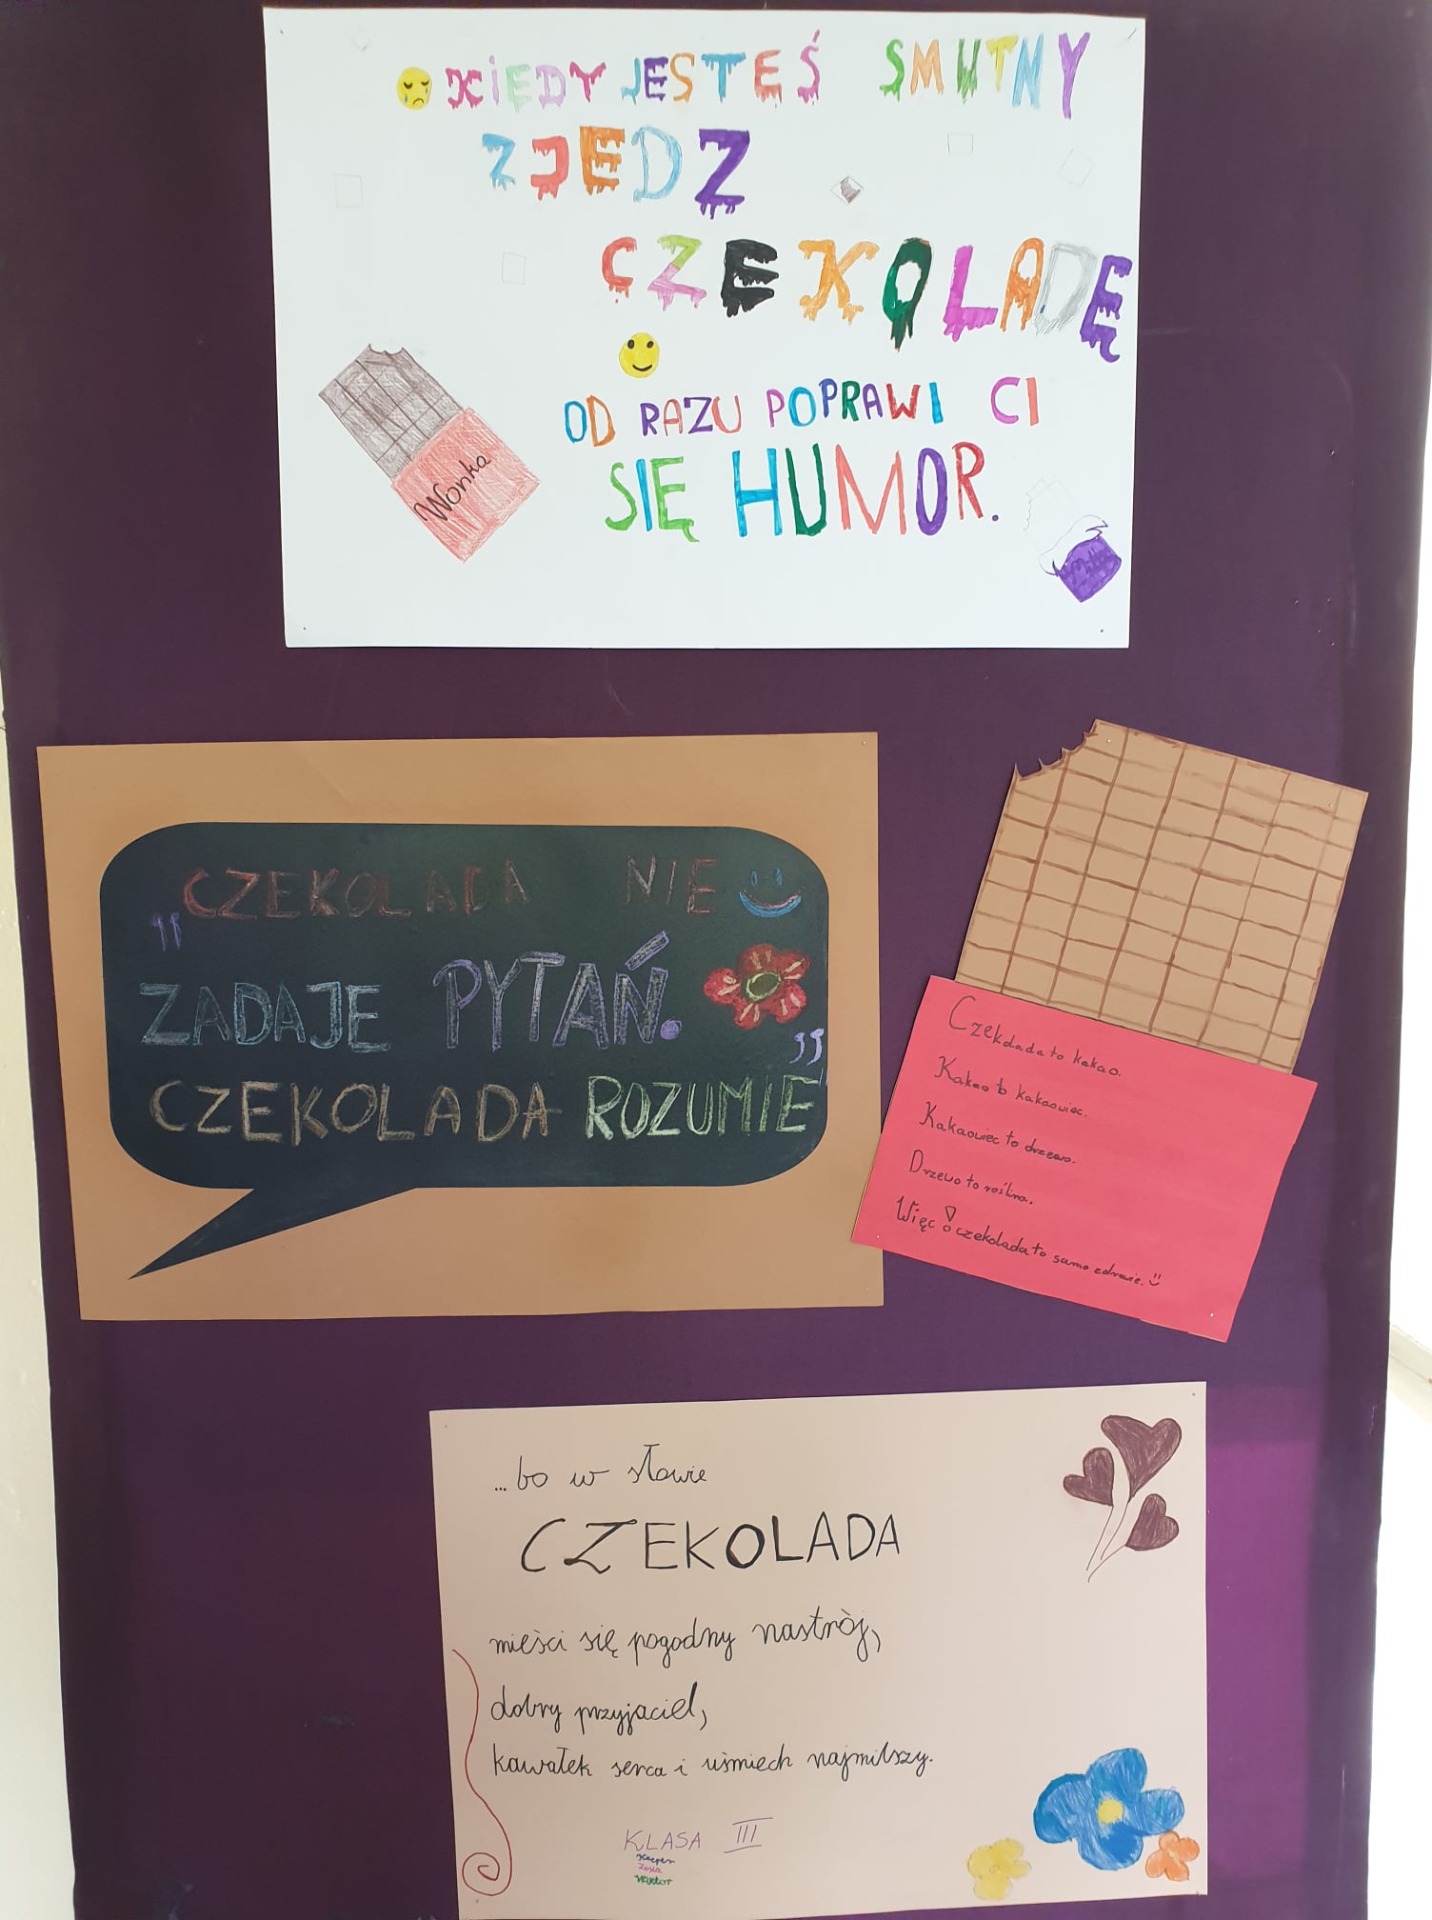 KIEDY JESTEŚ SMUTNY
ZJEDZ
CZEKOLADĘ
OD RAZU POPRAWI CI
SIĘ HUMOR.
Wonka
CZEKOLADA NIE
"
ZADAJE PYTAŃ.
"
CZEKOLADA ROZUMIE
Czekolada to kakao.
Kakao to kakaowiec.
Kakaowiec to drzewo.
Drzewo to roślina.
Więc czekolada to samo zdrowie. :)
...bo w słowie
CZEKOLADA
mieści się pogodny nastrój,
dobry przyjaciel,
kawałek serca i uśmiech najmilszy.
KLASA III
Kacper
Zosia
Wiktor